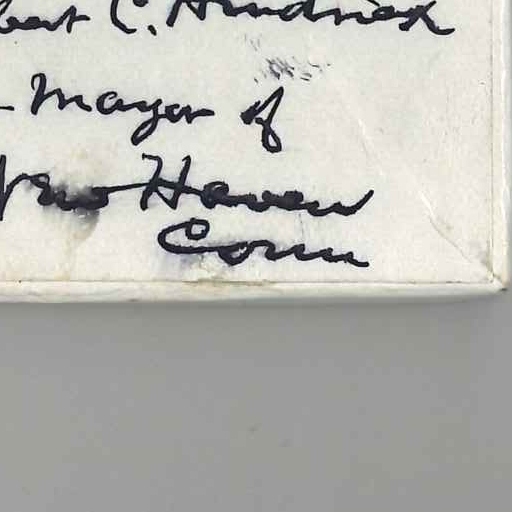 C. Hendrick
Mayor of
New Haven
Conn